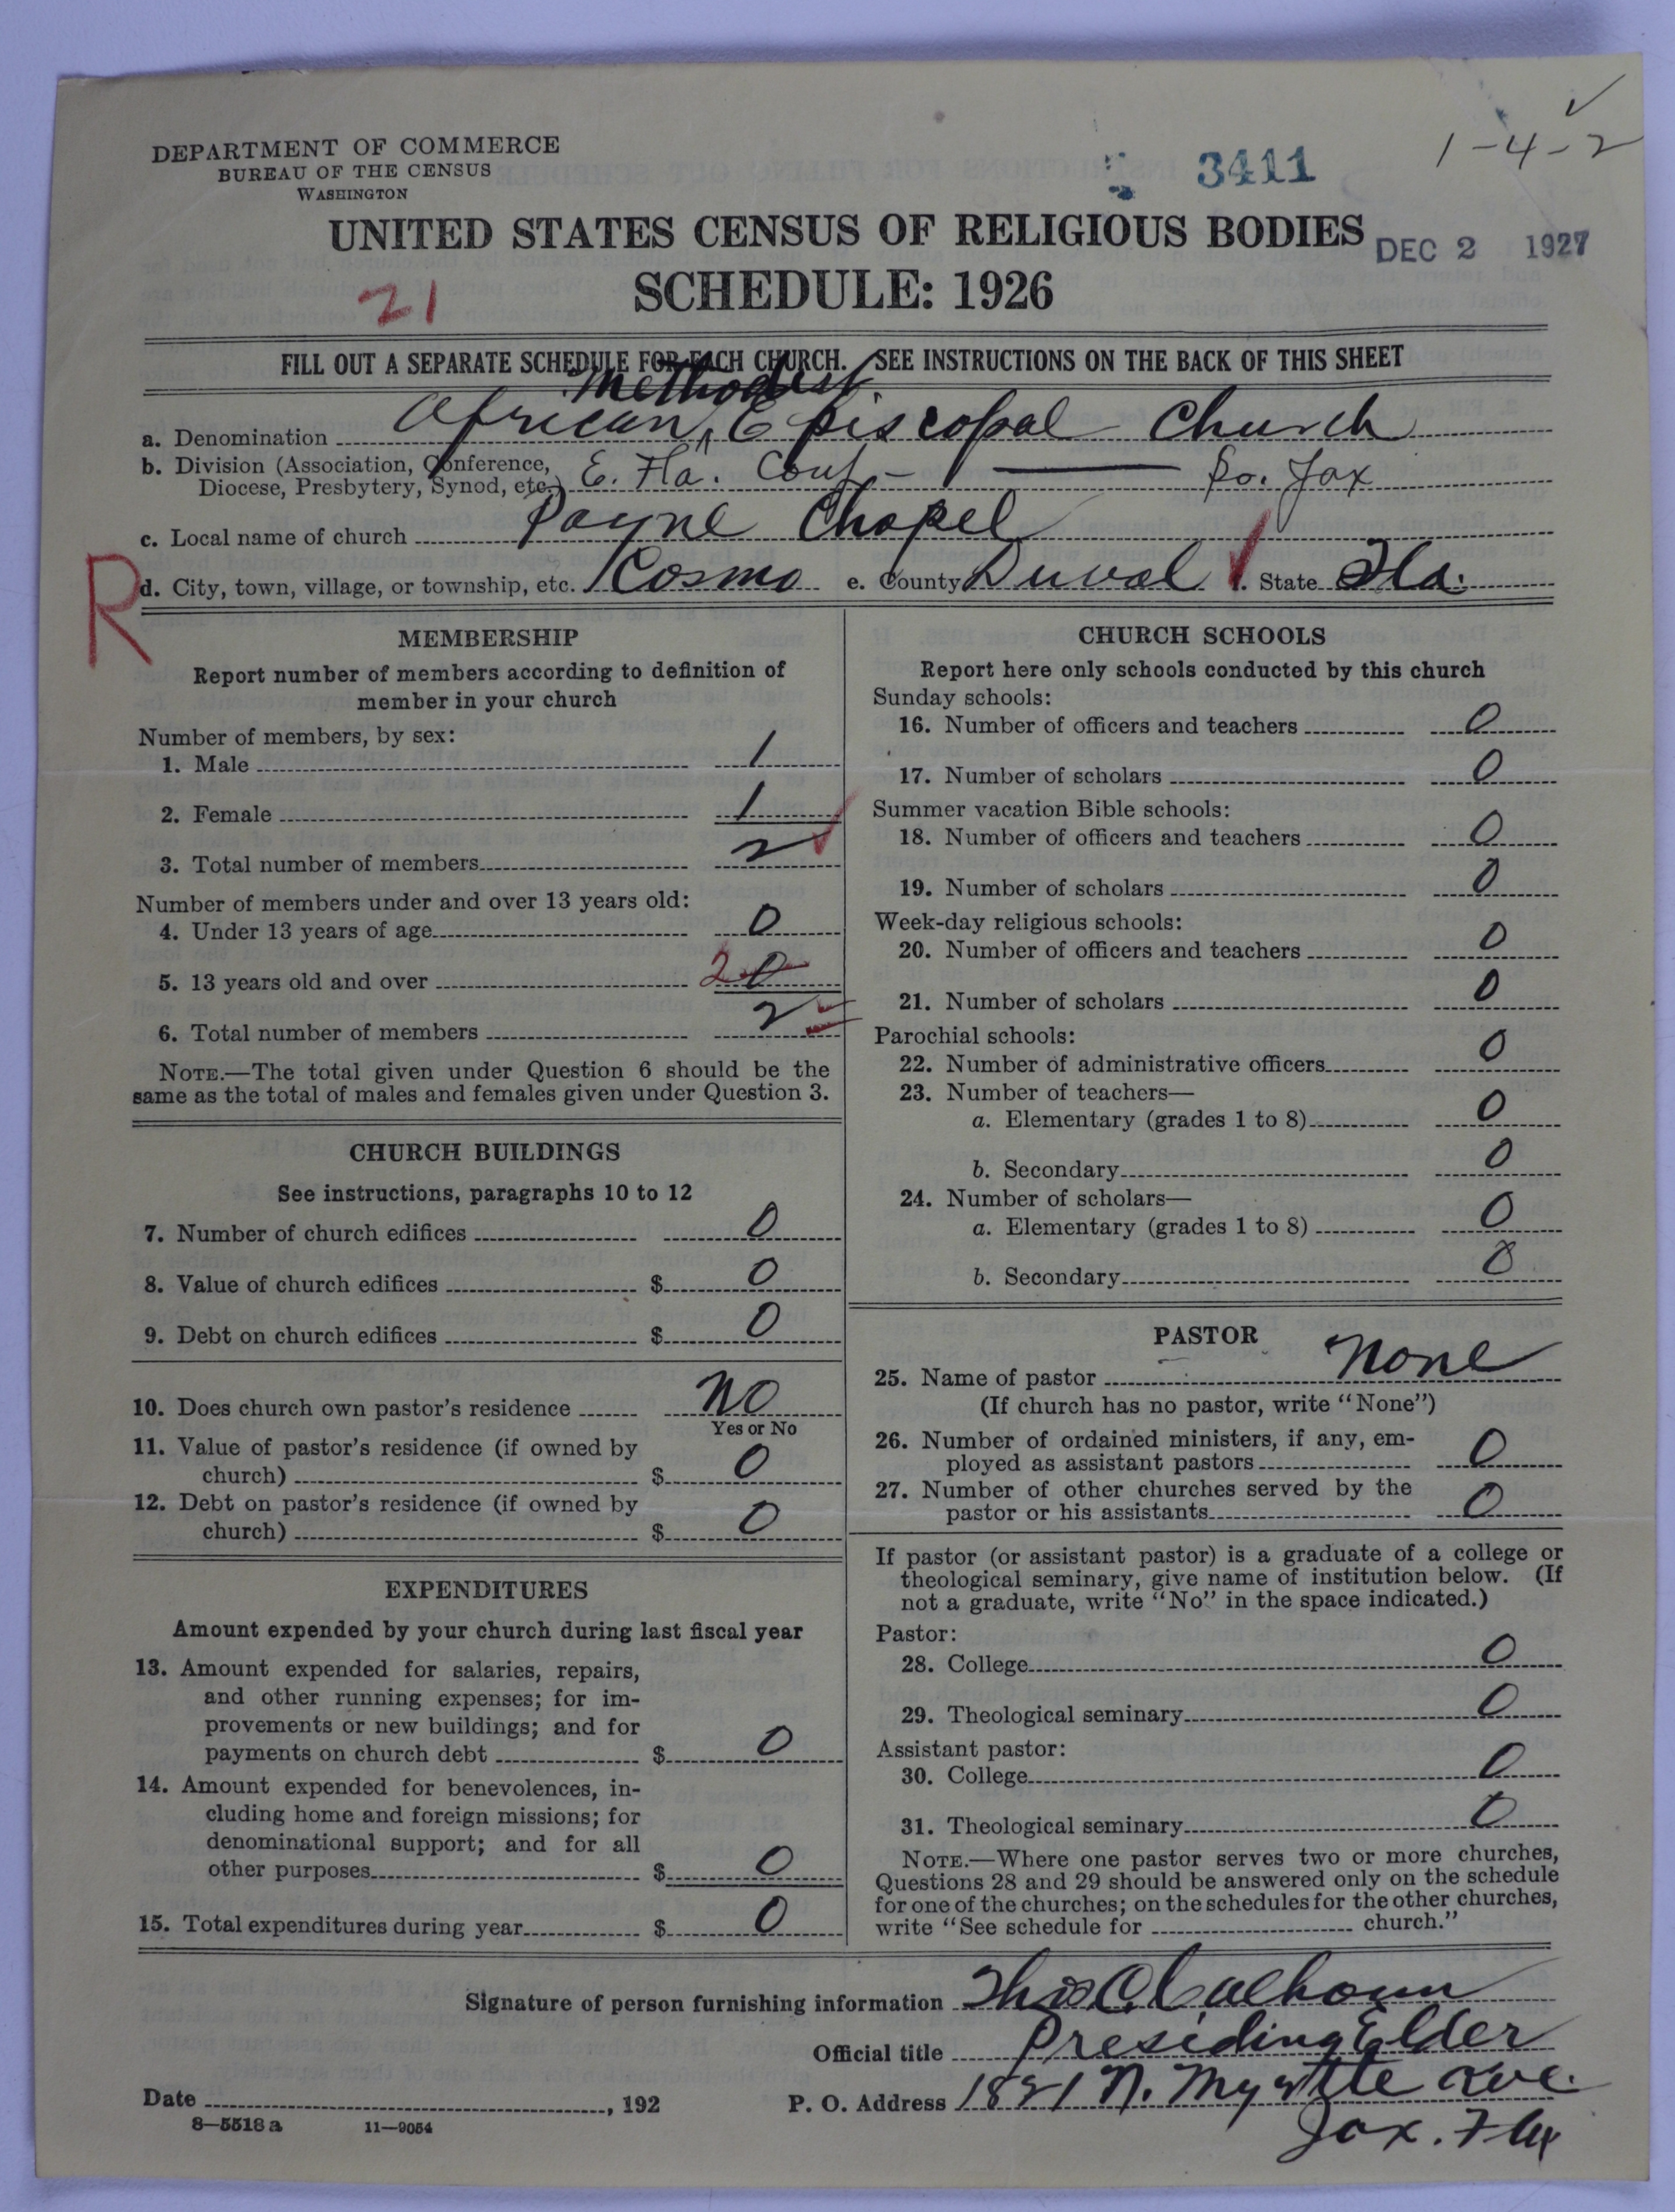 DEPARTMENT OF COMMERCE
BUREAU OF THE CENSUS
WASHINGTON
3411
1-4-2
UNITED STATES CENSUS OF RELIGIOUS BODIES
DEC 2 1927
SCHEDULE: 1926
21
FILL OUT A SEPARATE SCHEDULE FOR EACH CHURCH. SEE INSTRUCTIONS ON THE BACK OF THIS SHEET
Methodist
a. Denomination African ^ Episcopal Church
b. Division (Association, Conference, Diocese, Presbytery, Synod, etc.) E. Fla. Conf - So. Jax
c. Local name of church Payne Chapel
R
d. City, town, village, or township, etc. Cosmo e. County Duval f. State Fla.
MEMBERSHIP
Report number of members according to definition of
member in your church
Number of members, by sex:
1. Male 1
2. Female 1
3. Total number of members 2
Number of members under and over 13 years old:
4. Under 13 years of age 0
5. 13 years old and over 2 0
6. Total number of members 2
NOTE.—The total given under Question 6 should be the
same as the total of males and females given under Question 3.
CHURCH BUILDINGS
See instructions, paragraphs 10 to 12
7. Number of church edifices 0
8. Value of church edifices $ 0
9. Debt on church edifices $ 0
10. Does church own pastor's residence No
Yes or No
11. Value of pastor's residence (if owned by
church) $ 0
12. Debt on pastor's residence (if owned by
church) $ 0
EXPENDITURES
Amount expended by your church during last fiscal year
13. Amount expended for salaries, repairs,
and other running expenses; for im-
provements or new buildings; and for
payments on church debt $ 0
14. Amount expended for benevolences, in-
cluding home and foreign missions; for
denominational support; and for all
other purposes $ 0
15. Total expenditures during year $ 0
CHURCH SCHOOLS
Report here only schools conducted by this church
Sunday schools:
16. Number of officers and teachers 0
17. Number of scholars 0
Summer vacation Bible schools:
18. Number of officers and teachers 0
19. Number of scholars 0
Week-day religious schools:
20. Number of officers and teachers 0
21. Number of scholars 0
Parochial schools:
22. Number of administrative officers 0
23. Number of teachers—
a. Elementary (grades 1 to 8) 0
b. Secondary 0
24. Number of scholars—
a. Elementary (grades 1 to 8) 0
b. Secondary 0
PASTOR
25. Name of pastor None
(If church has no pastor, write "None")
26. Number of ordained ministers, if any, em-
ployed as assistant pastors 0
27. Number of other churches served by the
pastor or his assistants 0
If pastor (or assistant pastor) is a graduate of a college or
theological seminary, give name of institution below. (If
not a graduate, write "No" in the space indicated.)
Pastor:
28. College 0
29. Theological seminary 0
Assistant pastor:
30. College 0
31. Theological seminary 0
NOTE.—Where one pastor serves two or more churches,
Questions 28 and 29 should be answered only on the schedule
for one of the churches; on the schedules for the other churches,
write "See schedule for church."
Signature of person furnishing information Thos C. Calhoun
Official title Presiding Elder
Date , 192
P. O. Address N. Myrtle Ave.
Jax. Fla
8—5518 a 11—9054